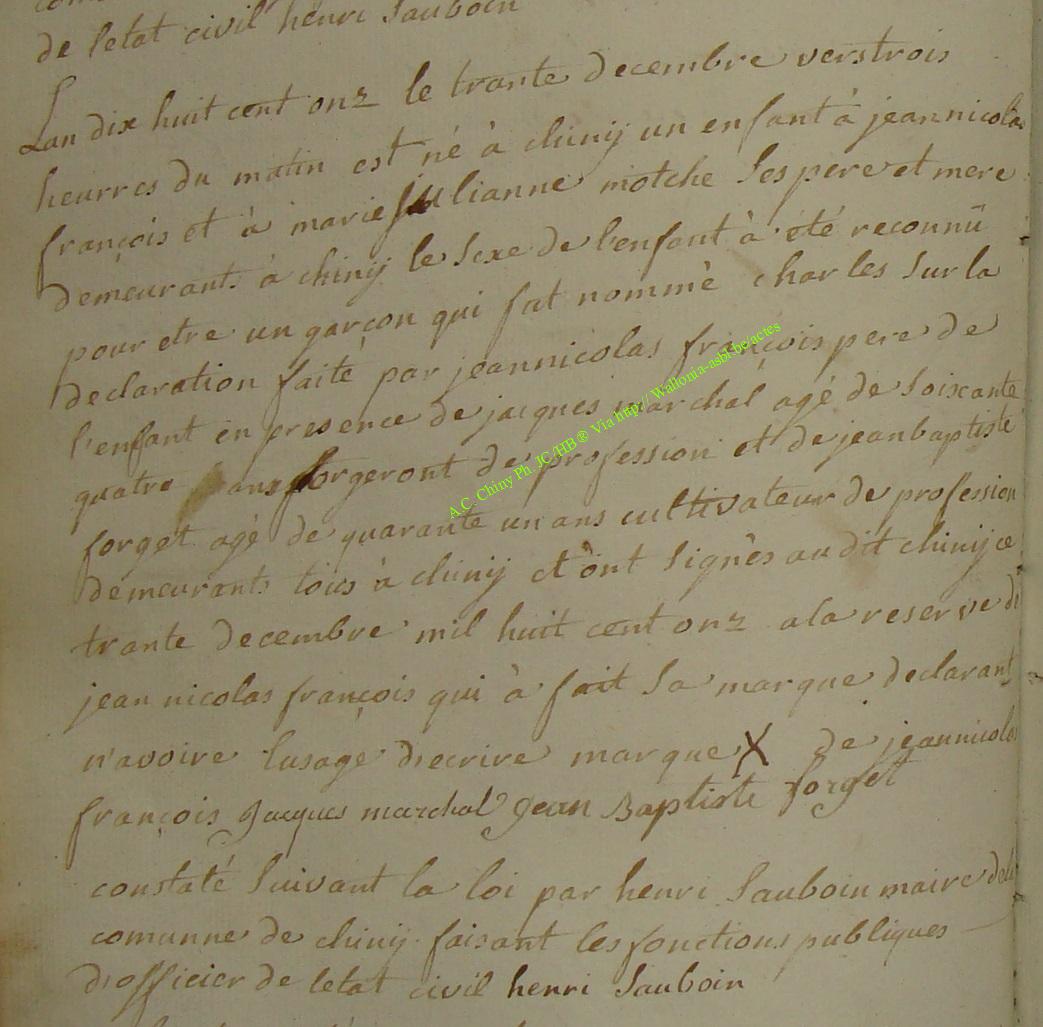 de letat civil henri Sauboin
Lan dix huit cent onz le trante decembre vers trois
heurres du matin est né à chinij un enfant à jeannicolas
françois et à marie julianne motche Ses pere et mere
demeurants à chinij le Sexe de l'enfant à été reconnû
pour etre un garçon qui fat nommè charles Sur la
declaration faite par jeannicolas françois pere de
l'enfant en presence de jacques marchal agé de Soixante
quatre ans forgeront de profession et de jeanbaptiste
forget agé de quarante un ans cultivateur de profession
demeurants tous à chinij et ont Signès au dit chinij ce
trante decembre mil huit cent onz ala reserve de
jean nicolas françois qui à fait Sa marque declarant
n'avoire lusage decrire marque X de jeannicolas
françois Jacques marchal Jean Baptiste forget
constaté Suivant la loi par henri Sauboin maire dela
comunne de chinij faisant les fonctions publiques
d'officier de letat civil henri Sauboin
A.C. Chiny Ph. JC/HB ® Via http:// Wallonia-asbl-be/actes